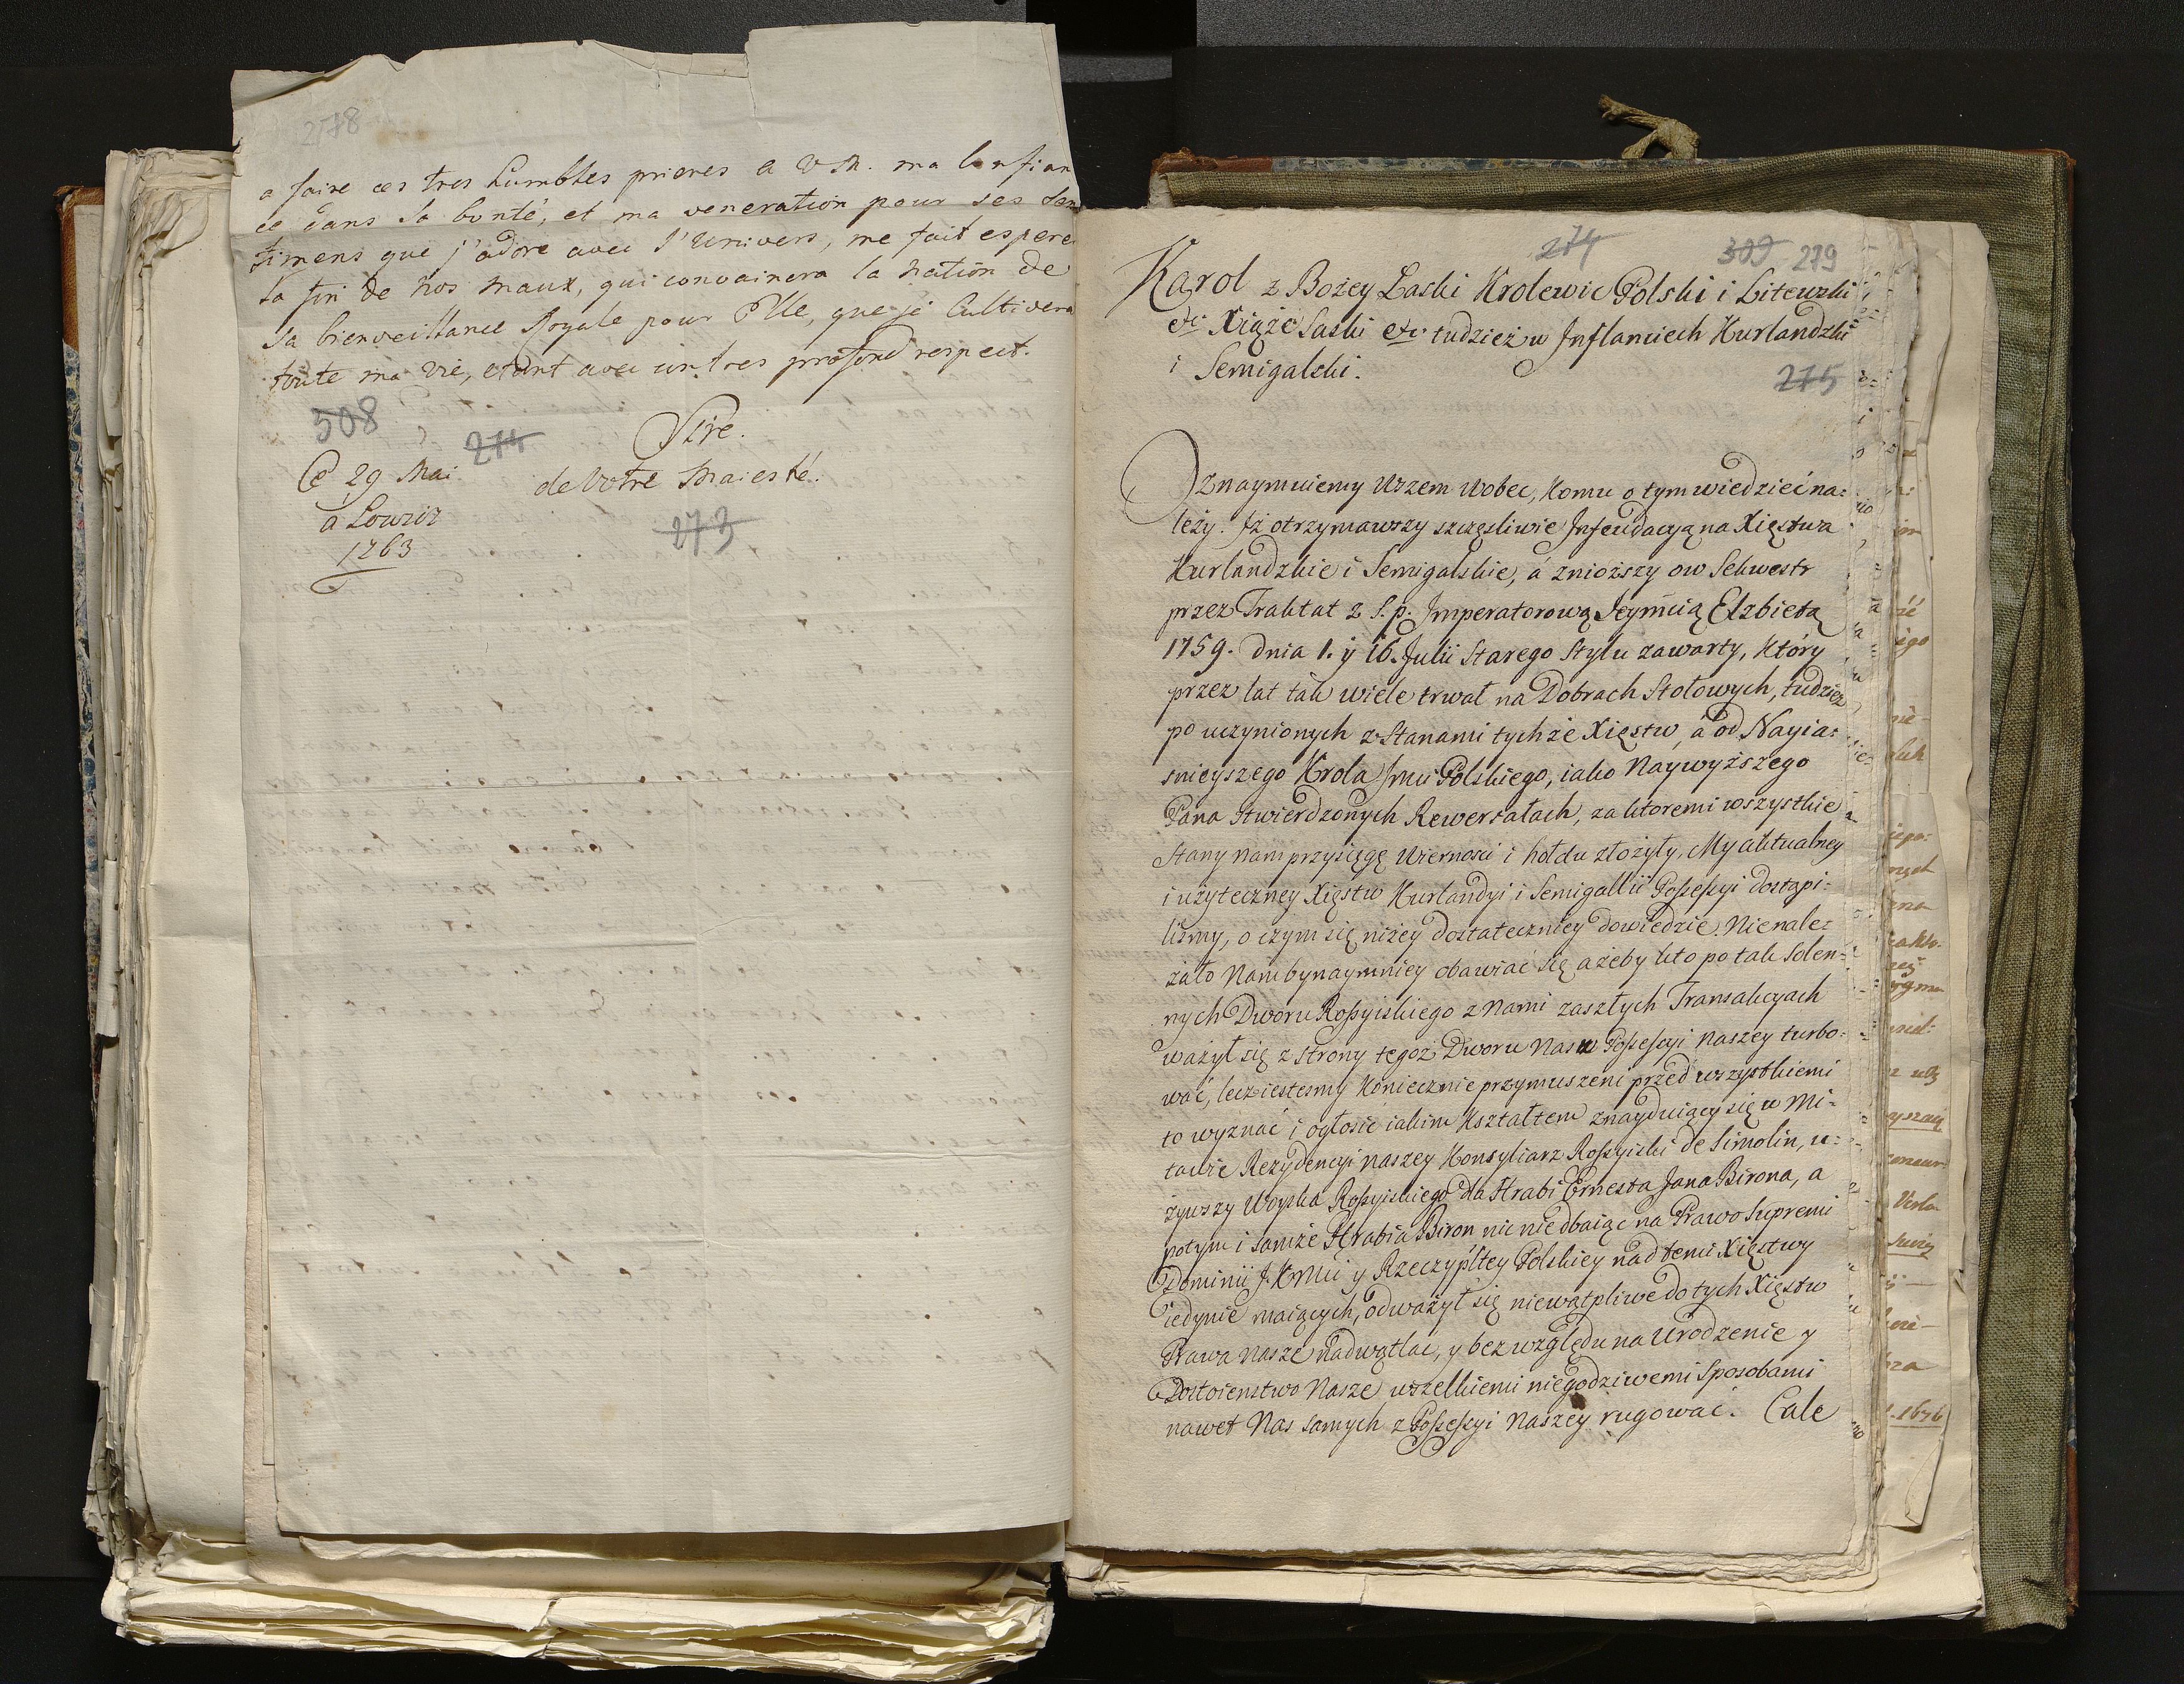 278
a faire ces tres humbles prieres a V M. ma Confian
ce dans sa bonté, et ma veneration pour ses sen
timens que j'adore avec l'Univers, me fait esperer
la fin de nos maux, qui convaincra la Nation de
sa bienveillance Royale pour Elle, que je Cultivera
toute ma vie, etant avec un tres profond respect.
508
274
Sire.
Ce 29 Mai
de Votre Maiesté.
a Lowiz
273
1763
274 309 279
Karol z Bożey Łaski Krolewic Polski i Litewski
etc Xiąże Saski etc tudzież w Inflanciech Kurlandzki
i Semigalski.
275
Oznaymuiemy Wszem Wobec, komu o tym wiedzieć na:
leży. Iż otrzymawszy szczęsliwie Infeudacyą na Xięstwa
Kurlandzkie i Semigalskie, á zniozszy ow Sekwestr
przez Traktat z S. p. Imperatorową Jeymcią Elzbietą
1759. dnia 1. y 16. Julii Starego Stylu zawarty, który
przez lat tak wiele trwał na Dobrach Stołowych, tudzież
po uczynionych z Stanami tychże Xięstw, á od Nayia:
snieyszego Krola Jmci Polskiego, iako Naywyższego
Pana Stwierdzonych Rewersałach, za ktoremi wszystkie
Stany nam przysięgę Wiernosci i hołdu złożyły, My aktualney
i użyteczney Xięstw Kurlandyi i Semigallii Possessyi dostąpi:
lismy, o czym się niżey dostateczniey dowiedzie. Nie nale:
żało Nam bynaymniey obawiać się ażeby kto po tak Solen:
nych Dworu Rossyiskiego z Nami zaszłych Transakcyach
ważył się z strony tegoż Dworu Nas w Possessyi Naszey turbo:
wać, lecz iestesmy koniecznie przymuszeni przed wszystkiemi
to wyznać i ogłosić iakim kształtem znayduiący się w Mi:
tawie Rezydencyi Naszey Konsyliarz Rossyiski de Simolin, u:
żywszy Woyska Rossyiskiego dla Hrabi Ernesta Jana Birona, a
potym i samże Hrabia Biron nic nie dbaiąc na Prawo Supremi
Dominii J. K Mci y Rzeczypltey Polskiey nad temi Xięstwy
iedynie maiących, odważył się niewątpliwe do tych Xięstw
Prawa Nasze nadwątlac, y bez względu na Urodzenie y
Dostoienstwo Nasze wszelkiemi niegodziwemi Sposobami
nawet Nas samych z Possessyi Naszey rugować. Cale